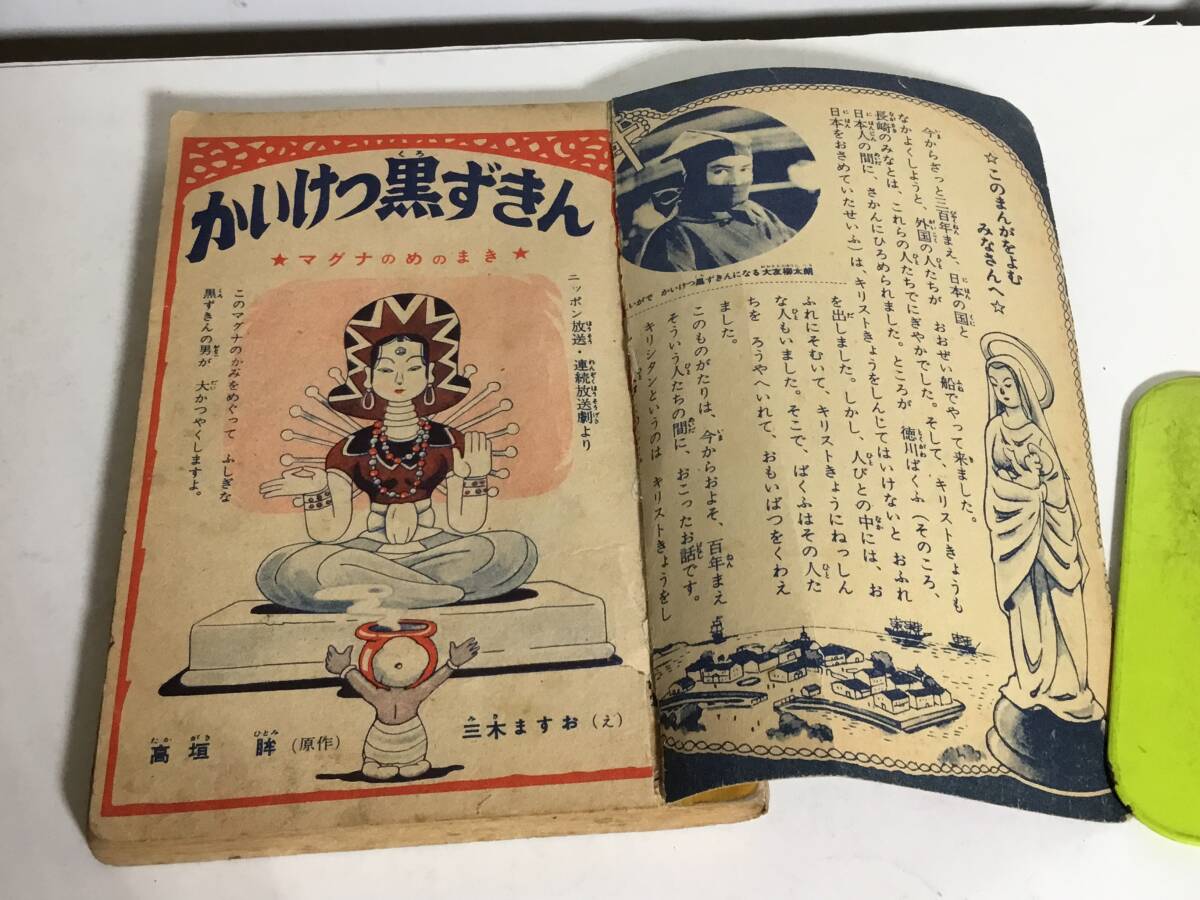 ☆このまんがをよむ
みなさんへ☆
今からざっと三百年まえ、日本の国と
なかよくしようと、外国の人たちが おおぜい船でやって来ました。
長崎のみなとは、これらの人たちでにぎやかでした。そして、キリストきょうも
日本人の間に、さかんにひろめられました。ところが 徳川ばくふ（そのころ、
日本をおさめていたせいふ）は、キリストきょうをしんじてはいけないと おふれ
を出しました。しかし、人びとの中には、お
ふれにそむいて、キリストきょうにねっしん
な人もいました。そこで、ばくふはその人た
ちを ろうやへいれて、おもいばつをくわえ
ました。
このものがたりは、今からおよそ、百年まえ
そういう人たちの間に、おこったお話です。
キリシタンというのは キリストきょうをし
いがで かいけつ黒ずきんになる大友柳太朗
かいけつ黒ずきん
★マグナのめのまき★
ニッポン放送・連続放送劇より
このマグナのかみをめぐって ふしぎな
黒ずきんの男が 大かつやくしますよ。
高垣 眸（原作）
三木ますお（え）